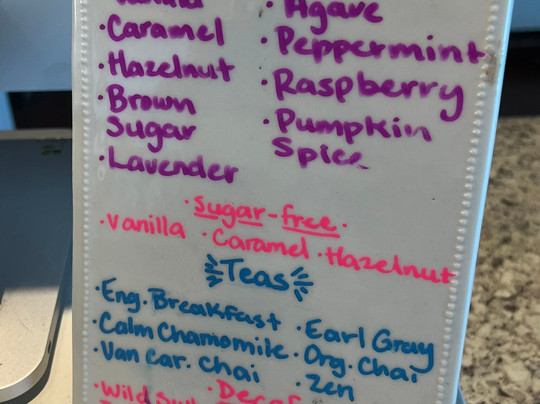 Vanilla
· Caramel
· Hazelnut
· Brown
Sugar
· Lavender
· Agave
· Peppermint
· Raspberry
· Pumpkin
Spice
· sugar-free ·
· Vanilla · Caramel · Hazelnut
Teas
· Eng. Breakfast · Earl Gray
· Calm Chamomile · Org. Chai
· Van Car. Chai · Zen
· Wild · Decaf